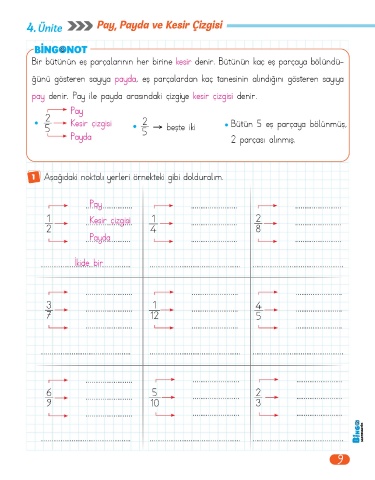 4. Ünite
Pay, Payda ve Kesir Çizgisi
BİNGONOT
Bir bütünün eş parçalarının her birine kesir denir. Bütünün kaç eş parçaya bölündü-
ğünü gösteren sayıya payda, eş parçalardan kaç tanesinin alındığını gösteren sayıya
pay denir. Pay ile payda arasındaki çizgiye kesir çizgisi denir.
• 2/5 → Pay
→ Kesir çizgisi
→ Payda
• 2/5 → beşte iki
• Bütün 5 eş parçaya bölünmüş,
2 parçası alınmış.
1 Aşağıdaki noktalı yerleri örnekteki gibi dolduralım.
1/2 Pay
Kesir çizgisi
Payda
İkide bir
1/4
2/8
3/7
1/12
4/5
6/9
5/10
2/3
9